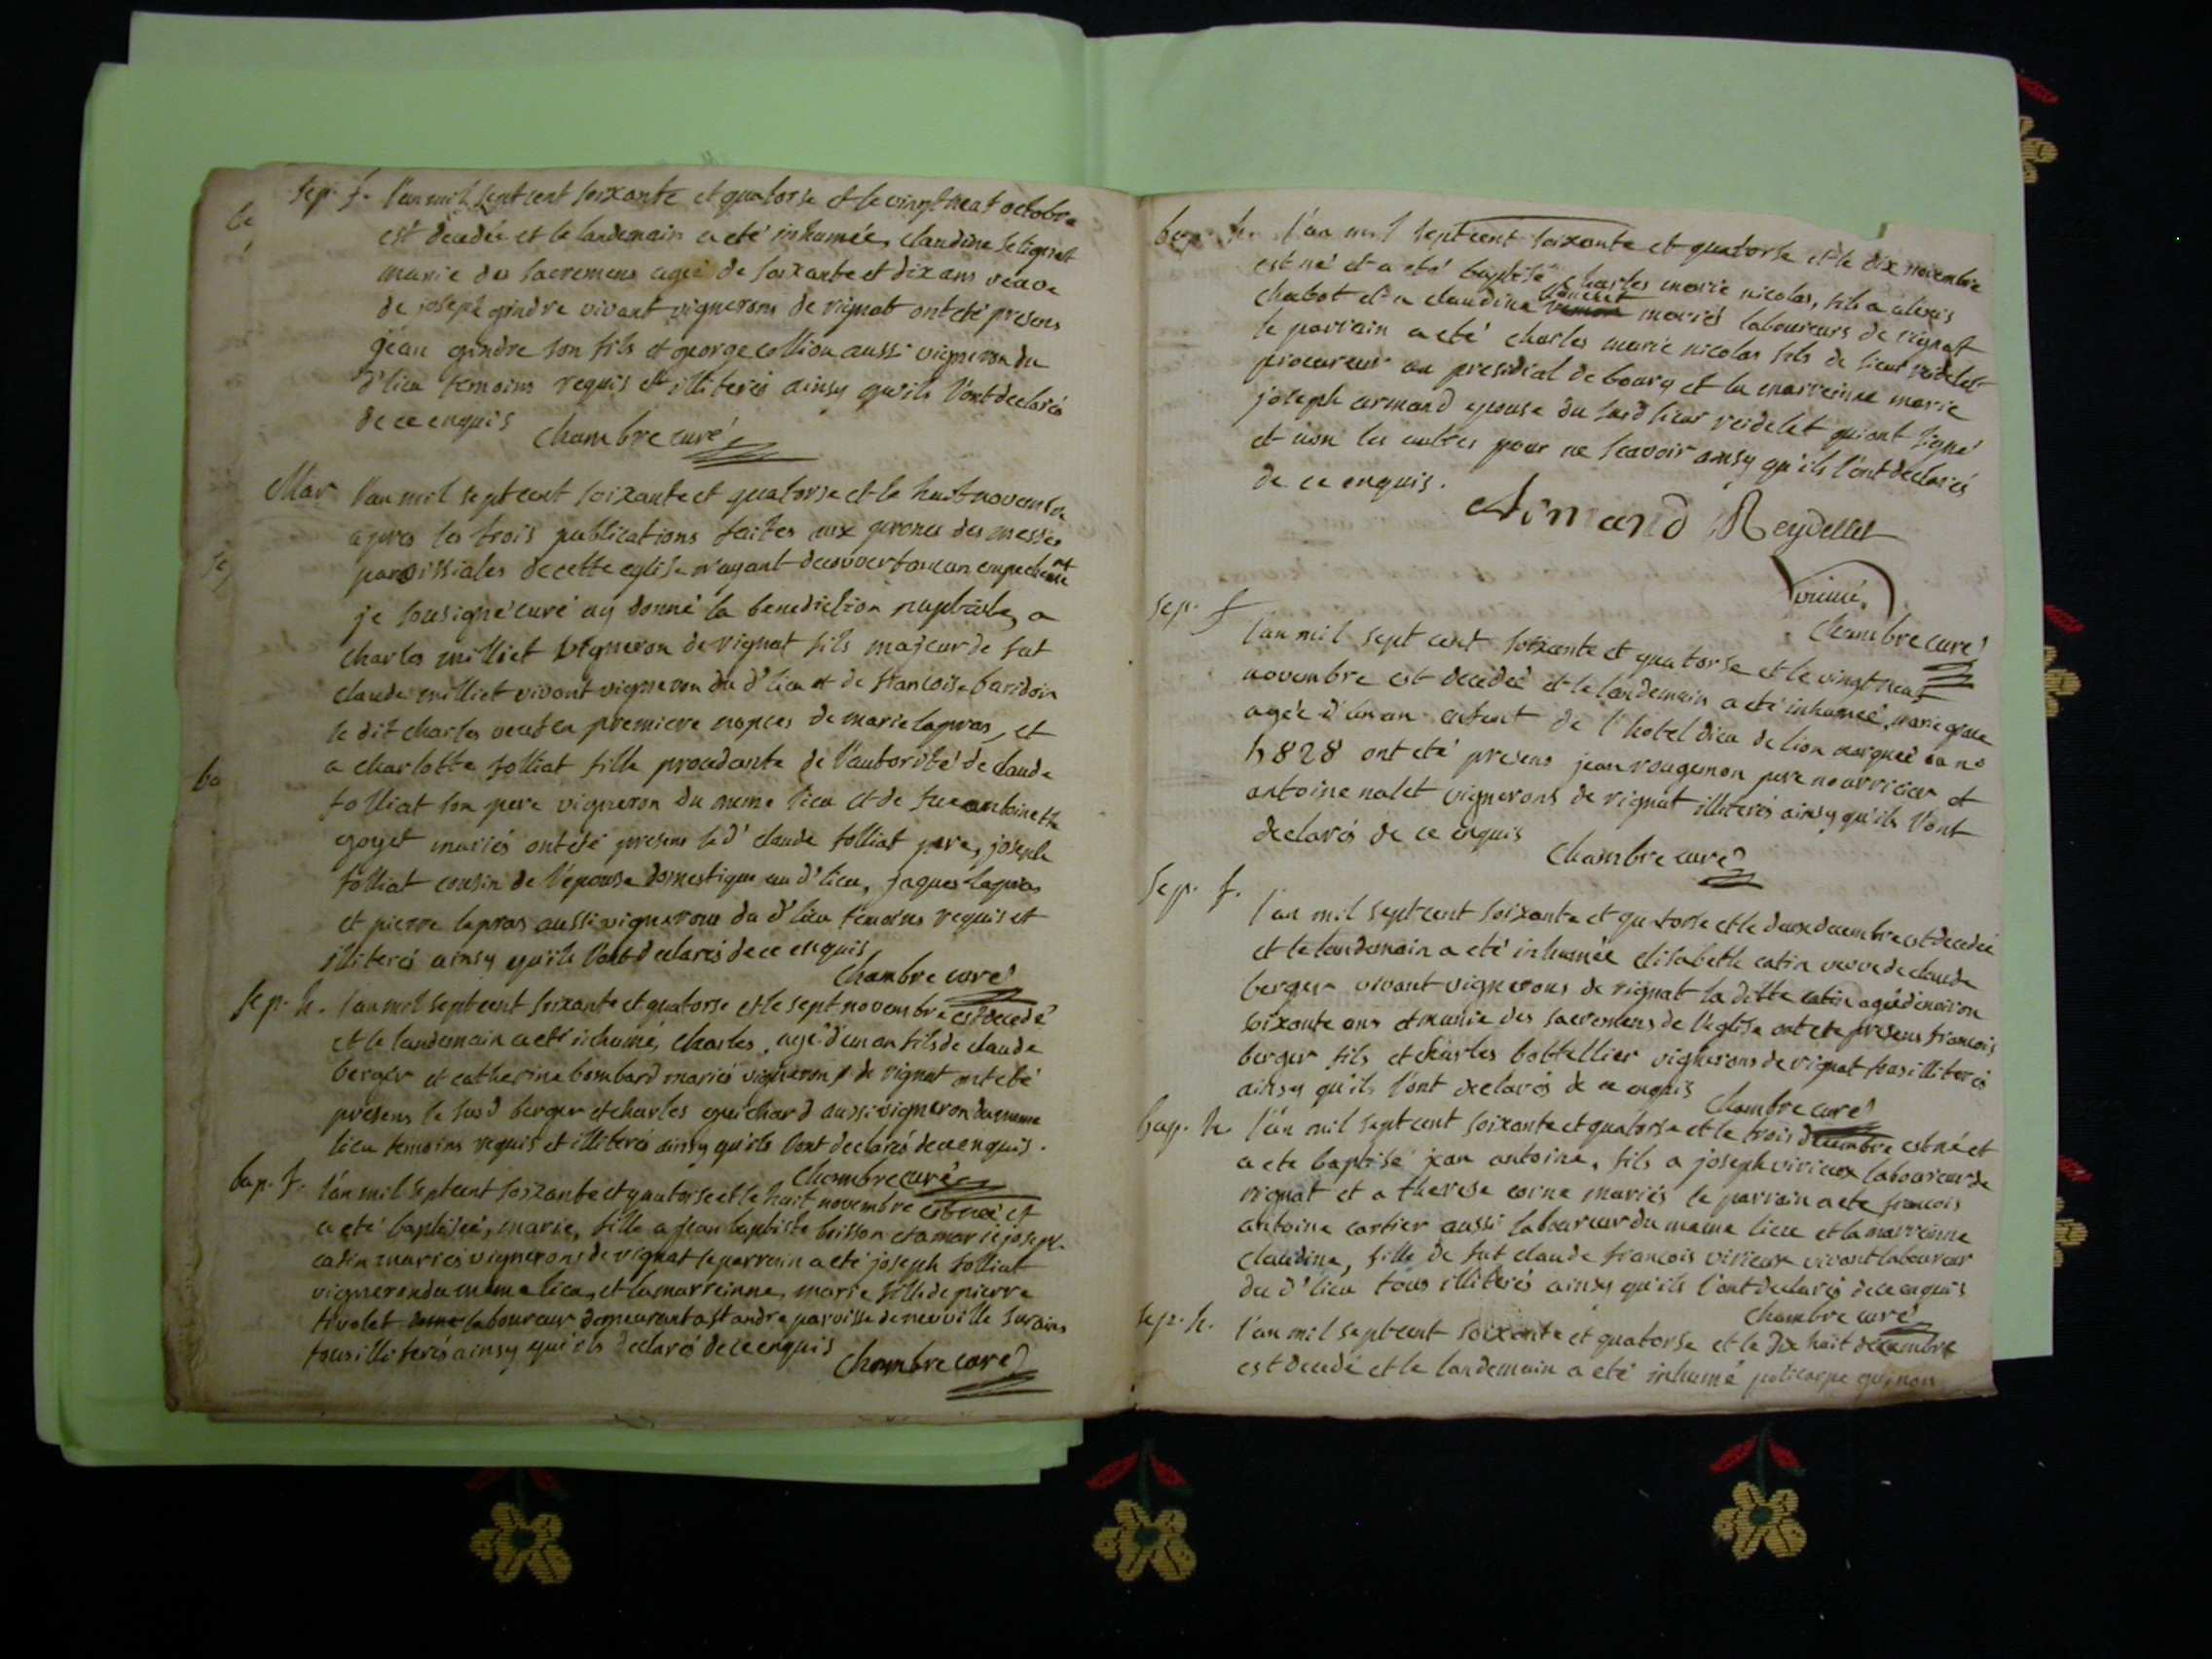 Sep. f. l'an mil sept cent soixante et quatorse et le vingt neuf octobre
est decedée et le landemain a eté inhumée, claudine
munie des sacremens agée de soixante et dix ans veuve
de joseph gindre vivant vignerons de rignat ont eté presens
jean gindre son fils et george collion aussi vigneron du
d' lieu temoins requis et illiterés ainsy qu'ils l'ont declarés
de ce enquis chambre curé
Mar l'an mil sept cent soixante et quatorse et le huit novembre
apres les trois publications faites aux prones des messes
paroissiales de cette eglise n'ayant decouvert aucun empechement
je sousigné curé ay donné la benediction nuptiale, a
charles milliet vigneron de rignat fils majeur de fut
claude milliet vivant vigneron du d' lieu et de francoise baridoin
le dit charles veuf en premiere nopces de marie lapras, et
a charlotte folliat fille procedante de l'autorité de claude
folliat son pere vigneron du meme lieu et de fue antoinette
goyet mariés ont eté presens le d' claude folliat pere, joseph
folliat cousin de l'epouse domestique au d' lieu, jaques lapras
et pierre lapras aussi vignerons du d' lieu temoins requis et
illiterés ainsy qu'ils l'ont declarés de ce enquis
chambre curé
sep. h. l'an mil sept cent soixante et quatorse et le sept novembre est decedé
et le landemain a eté inhumé, charles, agé d'un an fils de claude
berger et catherine bombard mariés vignerons de rignat ont eté
presens le susd berger et charles guichard aussi vigneron du meme
lieu temoins requis et illiterés ainsy qu'ils l'ont declarés de ce enquis.
chambre curé
bap. f. l'an mil sept cent soixante et quatorse et le huit novembre est née et
a eté baptisée, marie, fille a jean baptiste brisson et a marie joseph
catin mariés vignerons de rignat le parrain a eté joseph folliat
vigneron du meme lieu, et la marreinne, marie fille de pierre
tivolet laboureur demeurant a st andré parroisse de neuville sur ains
tous illiterés ainsy qu'ils declarés de ce enquis
chambre curé
bap. h. l'an mil sept cent soixante et quatorse et le dix novembre
est né et a eté baptisé charles marie nicolas, fils a alexis
chabot et a claudine mariés laboureurs de rignat
le parrain a eté charles marie nicolas fils de sieur reidelet
procureur au presidial de bourg et la marreinne marie
joseph armand epouse du susd sieur reidelet qui ont signé
et non les autres pour ne scavoir ainsy qu'ils l'ont declarés
de ce enquis.
Armand Reydellet
chambre curé
sep. f l'an mil sept cent soixante et quatorse et le vingt neuf
novembre est decedée et le landemain a eté inhumée, marie
agée d'un an enfant de l'hotel dieu de lion marquée au n°
828 ont eté presens jean rougemon pere nourricier et
antoine nalet vignerons de rignat illiterés ainsy qu'ils l'ont
declarés de ce enquis
chambre curé
Sep. f. l'an mil sept cent soixante et quatorse et le deux decembre est decedée
et le landemain a eté inhumée elisabeth catin veuve de claude
berger vivant vignerons de rignat la ditte catin agée d'environ
soixante ans et munie des sacremens de l'eglise ont eté presens francois
berger fils et charles bottellier vignerons de rignat tous illiterés
ainsy qu'ils l'ont declarés de ce enquis
chambre curé
bap. h. l'an mil sept cent soixante et quatorse et le trois decembre est né et
a eté baptisé jean antoine, fils a joseph virieux laboureur de
rignat et a therese corne mariés le parrain a eté francois
antoine cartier aussi laboureur du meme lieu et la marreinne
claudine, fille de fut claude francois virieux vivant laboureur
du d' lieu tous illiterés ainsy qu'ils l'ont declarés de ce enquis
chambre curé
sep. h. l'an mil sept cent soixante et quatorse et le dix huit decembre
est decedé et le landemain a eté inhumé policarpe guinon